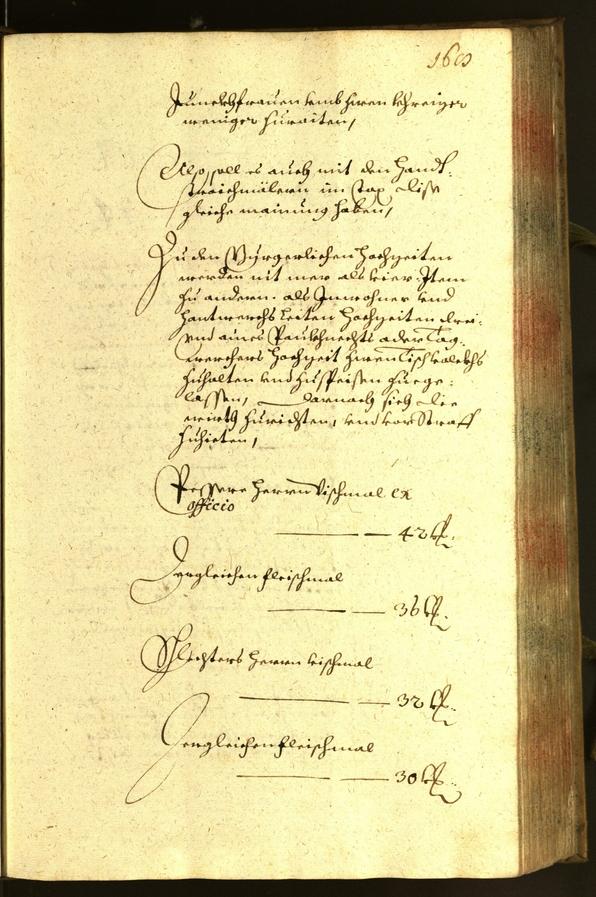 160
Junckhfrauen umb ihren khreizer
weniger zuraiten,
Also soll es auch mit den Handt-
straichmälern im tax dise
gleiche mainung haben,
Zu den Burgerlichen Hochzeiten
werden nit mer als vier Item
zu andern als Inwohner und
Hantwerchs Leiten Hochzeiten drei
und aines Paukhnechts oder Tag-
werchers Hochzeit ihren Tisch volckhs
zuhalten und zuspeisen zuege-
lassen, darnach sich die
wirth zurichten, und vor Straff
zuhieten,
Pessere Herrn Vischmal ex
officio
42
Dergleichen fleischmal
36
Schlechters Herrn vischmal
32
Dergleichen fleischmal
30